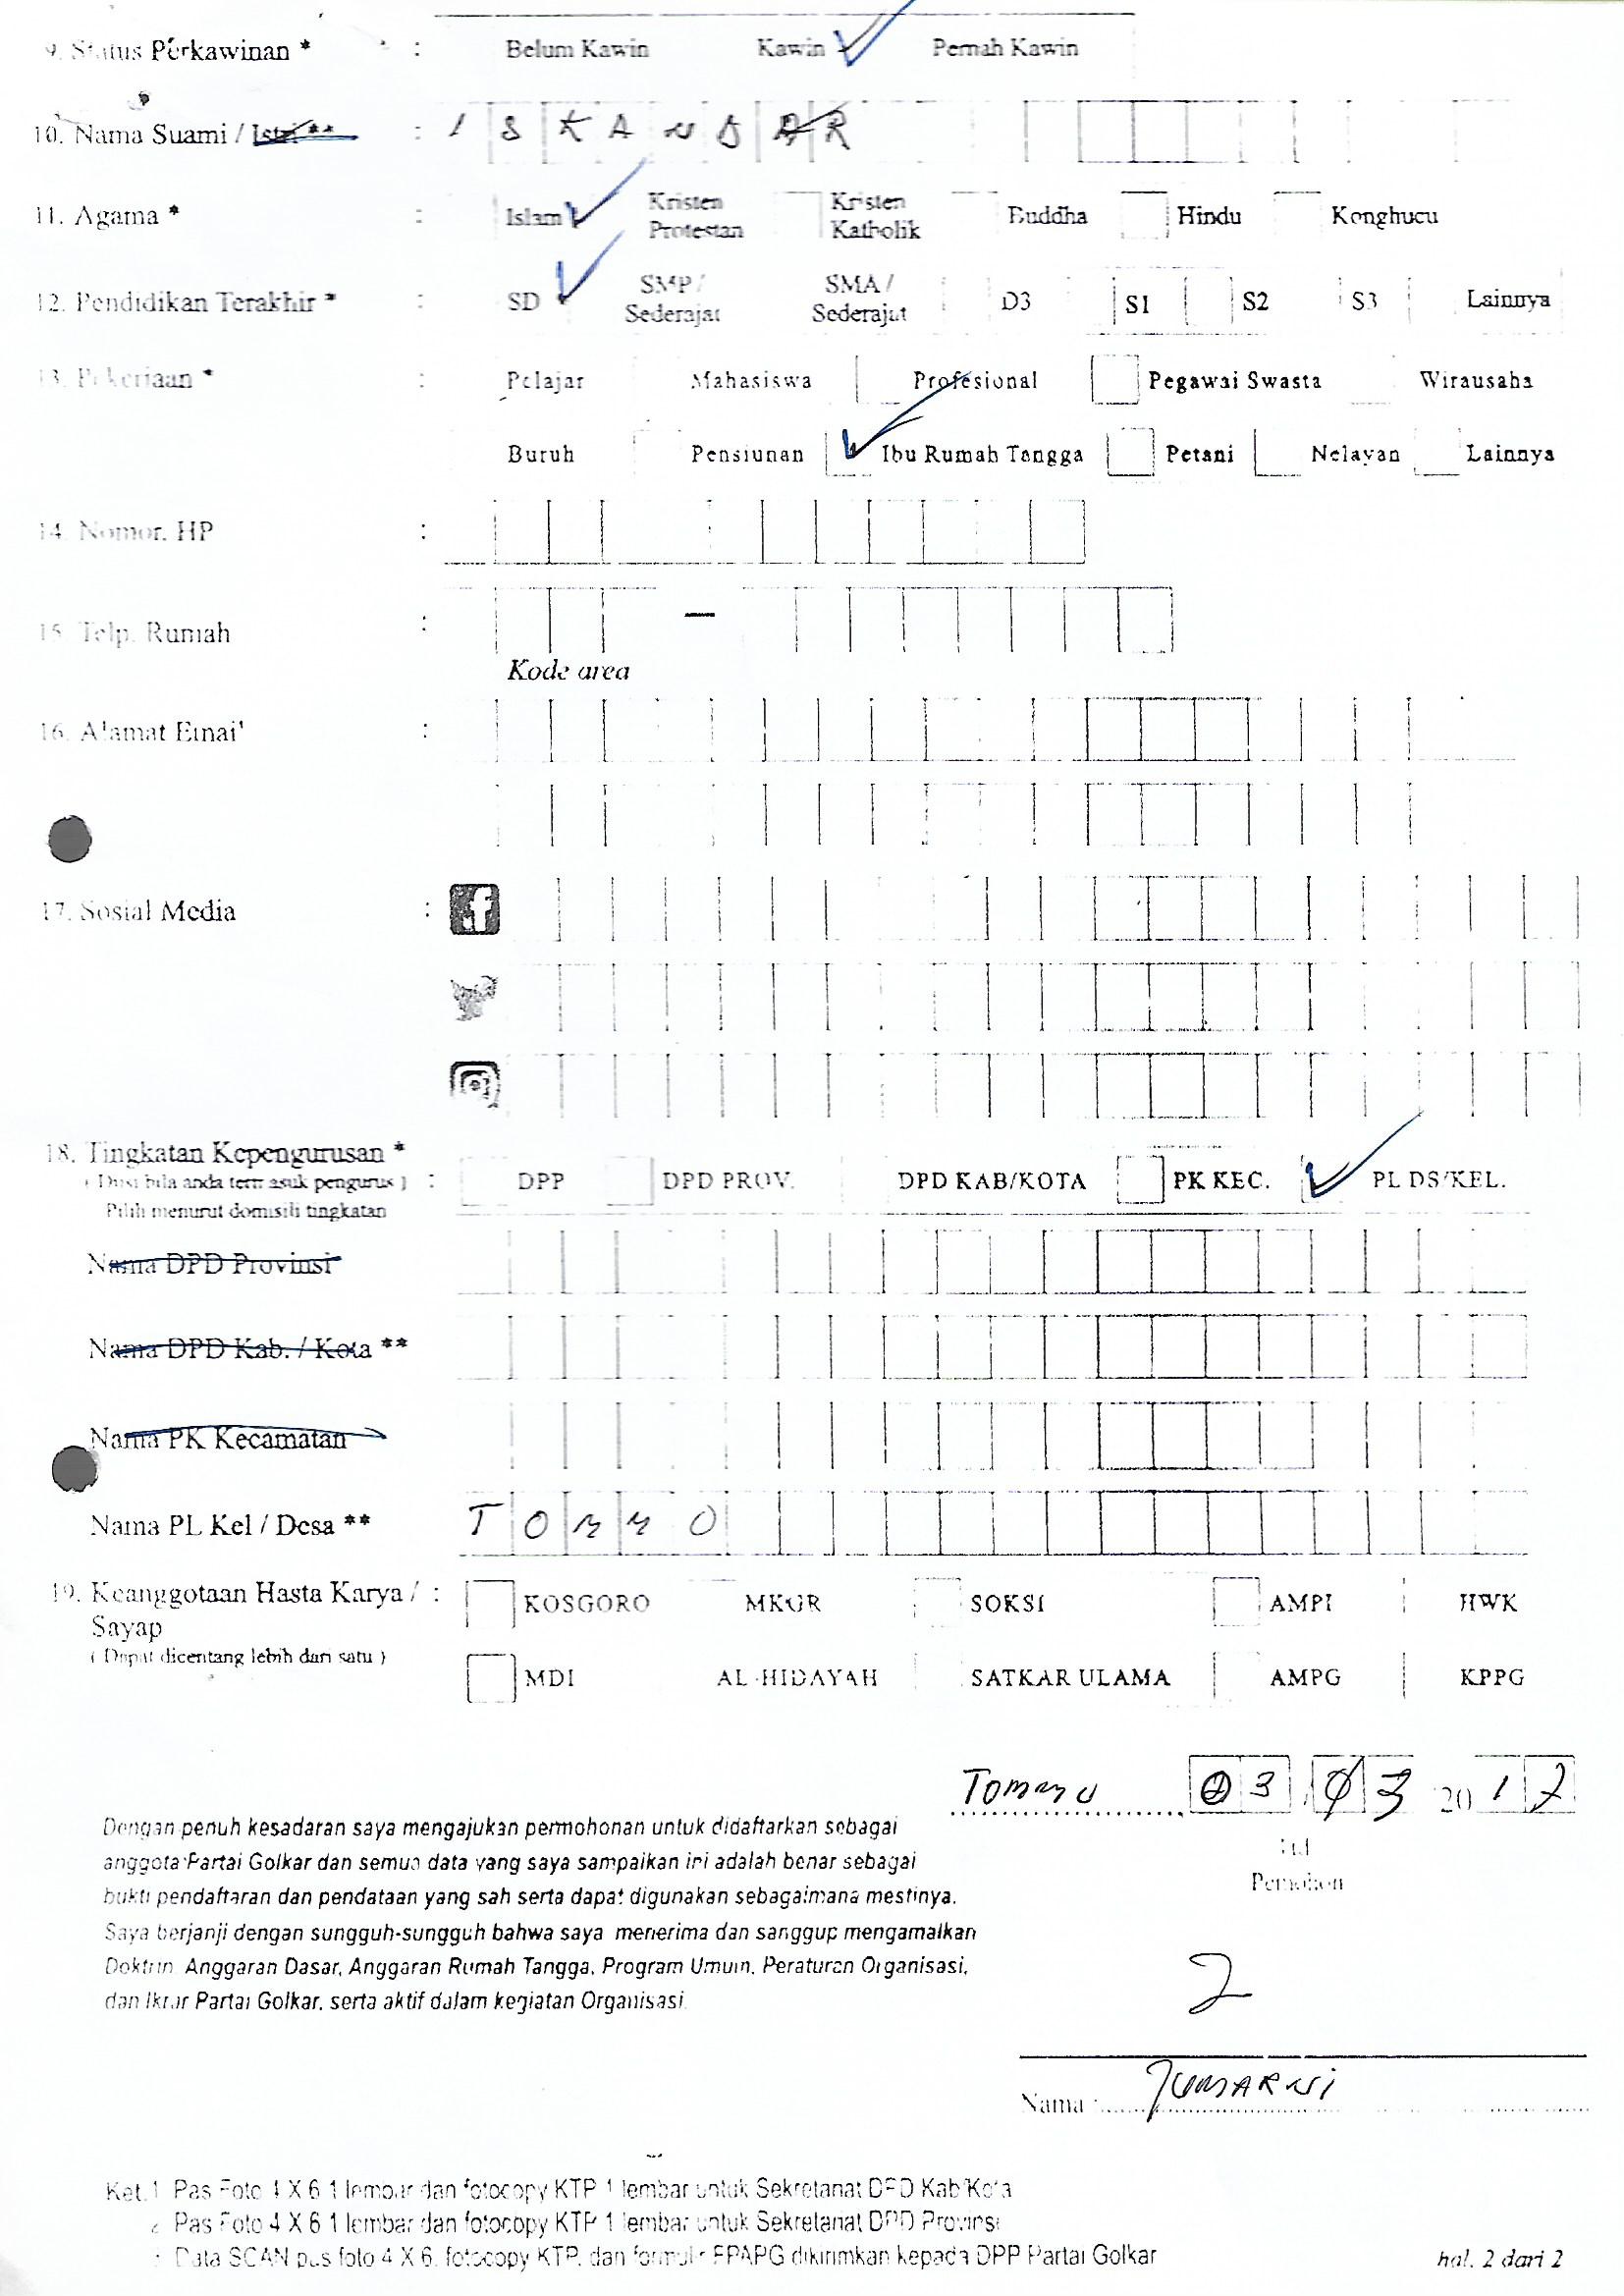 9. Status Perkawinan * : Belum Kawin Kawin Pernah Kawin
10. Nama Suami / Istri ** : ISKANDAR
11. Agama * : Islam Kristen Protestan Kristen Katholik Buddha Hindu Konghucu
12. Pendidikan Terakhir * : SD SMP / Sederajat SMA / Sederajat D3 S1 S2 S3 Lainnya
13. Pekerjaan * : Pelajar Mahasiswa Profesional Pegawai Swasta Wirausaha
Buruh Pensiunan Ibu Rumah Tangga Petani Nelayan Lainnya
14. Nomor. HP :
15. Telp. Rumah : –
Kode area
16. Alamat Email :
17. Sosial Media :
18. Tingkatan Kepengurusan *
( Diisi bila anda termasuk pengurus ) : DPP DPD PROV. DPD KAB/KOTA PK KEC. PL DS/KEL.
Pilih menurut domisili tingkatan
Nama DPD Provinsi
Nama DPD Kab. / Kota **
Nama PK Kecamatan
Nama PL Kel / Desa ** TOMMO
19. Keanggotaan Hasta Karya / : KOSGORO MKGR SOKSI AMPI HWK
Sayap
( Dapat dicentang lebih dari satu ) MDI AL-HIDAYAH SATKAR ULAMA AMPG KPPG
Tommo 03 03 2017
Dengan penuh kesadaran saya mengajukan permohonan untuk didaftarkan sebagai
anggota Partai Golkar dan semua data yang saya sampaikan ini adalah benar sebagai
bukti pendaftaran dan pendataan yang sah serta dapat digunakan sebagaimana mestinya.
Saya berjanji dengan sungguh-sungguh bahwa saya menerima dan sanggup mengamalkan
Doktrin, Anggaran Dasar, Anggaran Rumah Tangga, Program Umum, Peraturan Organisasi,
dan Ikrar Partai Golkar, serta aktif dalam kegiatan Organisasi.
Ttd
Pemohon
Nama : JUMARNI
Ket.1. Pas Foto 4 X 6 1 lembar dan fotocopy KTP 1 lembar untuk Sekretariat DPD Kab/Kota
2. Pas Foto 4 X 6 1 lembar dan fotocopy KTP 1 lembar untuk Sekretariat DPD Provinsi
Data SCAN pas foto 4 X 6, fotocopy KTP, dan formulir FPAPG dikirimkan kepada DPP Partai Golkar
hal. 2 dari 2